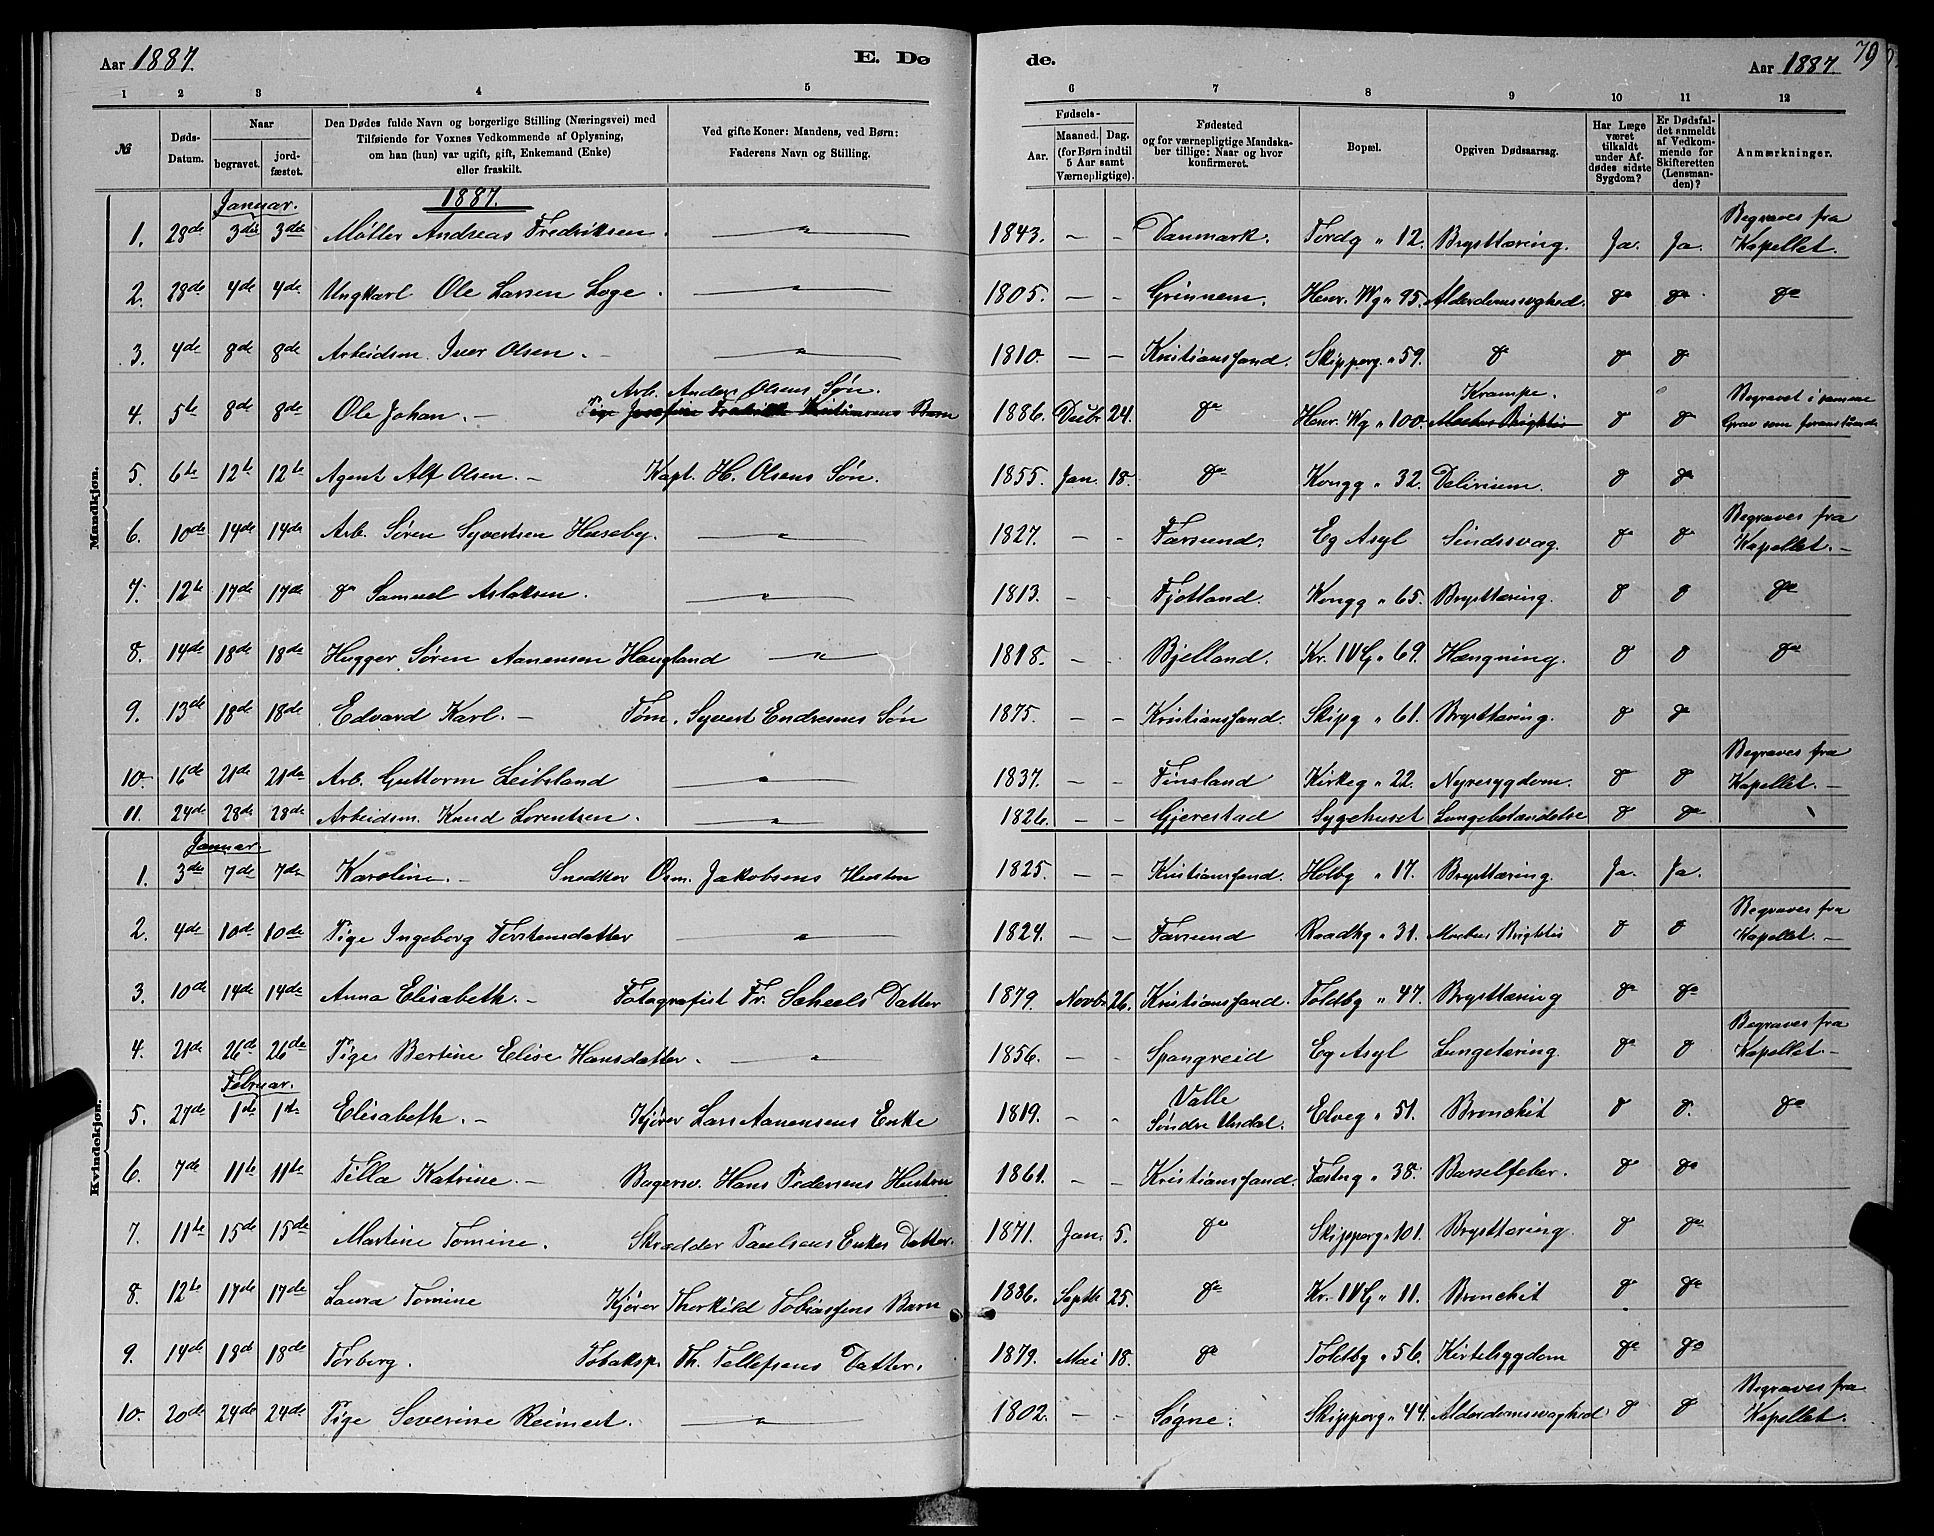 Aar 1887.
E. Døde.
79
Aar 1887.
1 2 3 4 5 6 7 8 9 10 11 12
№
Døds-Datum.
Naar
begravet.
jordfæstet.
Den Dødes fulde Navn og borgerlige Stilling (Næringsvei) med
Tilføiende for Voxnes Vedkommende af Oplysning,
om han (hun) var ugift, gift, Enkemand (Enke)
eller fraskilt.
Ved gifte Koner: Mandens, ved Børn:
Faderens Navn og Stilling.
Fødsels-
Aar.
Maaned. Dag.
(for Børn indtil
5 Aar samt
Værnepligtige).
Fødested
og for værnepligtige Mandska-
ber tillige: Naar og hvor
konfirmeret.
Bopæl.
Opgiven Dødsaarsag.
Har Læge
været
tilkaldt
under Af-
dødes sidste
Sygdom?
Er Dødsfal-
det anmeldt
af Vedkom-
mende for
Skifteretten
(Lensman-
den)?
Anmærkninger.
Mandkjøn.
Januar. 1887.
1. 28de 3die 3die Møller Andreas Fredriksen. " 1843. - - Danmark. Tordg " 12. Brysttæring. Ja. Ja. Begraves fra Kapellet.
2. 28de 4de 4de Ungkarl Ole Larsen Loge. " 1805. - - Grimnem. Henr. Wg " 95. Alderdomssvaghed. do do do
3. 4de 8de 8de Arbeidsm. Iver Olsen. - " 1810. - - Kristianssand. Skipperg. " 59. do do do
4. 5te 8de 8de Ole Johan. - Arb. Anders Olsens Søn. Pige Josefine Fredrikke Kristiansens Barn 1886. Decbr 24. do Henr. Wg " 100. Krampe. Morbus Brightii do do Begravet i samme Grav som foranstående
5. 6te 12te 12te Agent Alf Olsen. - Kapt. H. Olsens Søn. 1855. Jan. 18. do Kongg " 32. Delirium. do do
6. 10de 14de 14de Arb. Søren Syvertsen Huseby. " 1827. - - Farsund. Eg Asyl Sindssvag. do do Begraves fra Kapellet. -
7. 12te 17de 17de do Samuel Aslaksen. " 1813. - - Fjotland. Kongg " 65. Brysttæring. do do do
8. 14de 18de 18de Hugger Søren Aanensen Haugland " 1818. - - Bjelland. Kr. IV G " 69. Hængning. do do do
9. 13de 18de 18de Edvard Karl. - Tøm. Syvert Endresens Søn 1875. - - Kristianssand. Skipg " 61. Brysttæring. do do
10. 16de 21de 21de Arb. Guttorm Leibsland " 1837. - - Finsland Kirkeg " 22. Nyresygdom. do do Begraves fra Kapellet. -
11. 24de 28de 28de Arbeidsm. Knud Lorentsen. " 1826. - - Gjerestad Sygehuset Lungebetændelse do do
Kvindekjøn.
Januar.
1. 3die 7de 7de Karoline. - Snedker Osm. Jakobsens Hustru 1825. - - Kristianssand. Holbg " 17. Brysttæring. Ja. Ja.
2. 4de 10de 10de Pige Ingeborg Torstensdatter " 1824. - - Farsund Raadhg " 31. Morbus Brightii do do Begraves fra Kapellet. -
3. 10de 14de 14de Anna Elisabeth. - Fotografist Fr. Scheels Datter 1879. Novbr 26. Kristianssand. Toldbg " 47. Brysttæring do do
4. 21de 26de 26de Pige Bertine Elise Hansdatter. " 1856. - - Spangreid Eg Asyl Lungetæring. do do Begraves fra Kapellet. -
Februar.
5. 27de 1ste 1ste Elisabeth. - Kjører Lars Aanensens Enke 1819. - - Valle Søndre Undal. Elveg " 51. Bronchit do do. do
6. 7de 11te 11te Tilla Katrine. - Bagersv. Hans Pedersens Hustru 1861. - - Kristianssand. Fæstng " 38. Barselfeber. do do
7. 11te 15de 15de Martine Tomine. Skrædder Paulsens Enkes Datter. 1871. Jan. 5. do Skipperg " 101. Brysttæring. do do
8. 12te 17de 17de Laura Tomine Kjører Thorkild Tobiassens Barn 1886. Septbr 25. do Kr. IV G " 11. Bronchit do do
9. 14de 18de 18de Torborg. Tobaksp. Th. Tellefsens Datter. 1879. Mai 18. do Toldbg " 56. Kirtelsygdom do do
10. 20de 24de 24de Pige Severine Reimert. " 1802. - - Søgne. Skipperg " 44. Alderdomssvaghed do do Begraves fra Kapellet.